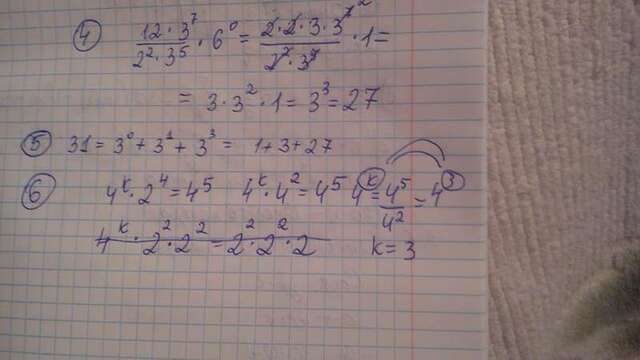 ④ 12·3⁷/2²·3⁵ · 6⁰ = 2·2·3·3⁷ ²/2²·3⁵ · 1 =
= 3·3²·1 = 3³ = 27
⑤ 31 = 3⁰ + 3¹ + 3³ = 1 + 3 + 27
⑥ 4ᵏ·2⁴ = 4⁵ 4ᵏ·4² = 4⁵ 4ᵏ = 4⁵/4² = 4³
4ᵏ·2²·2² = 2²·2²·2 k = 3